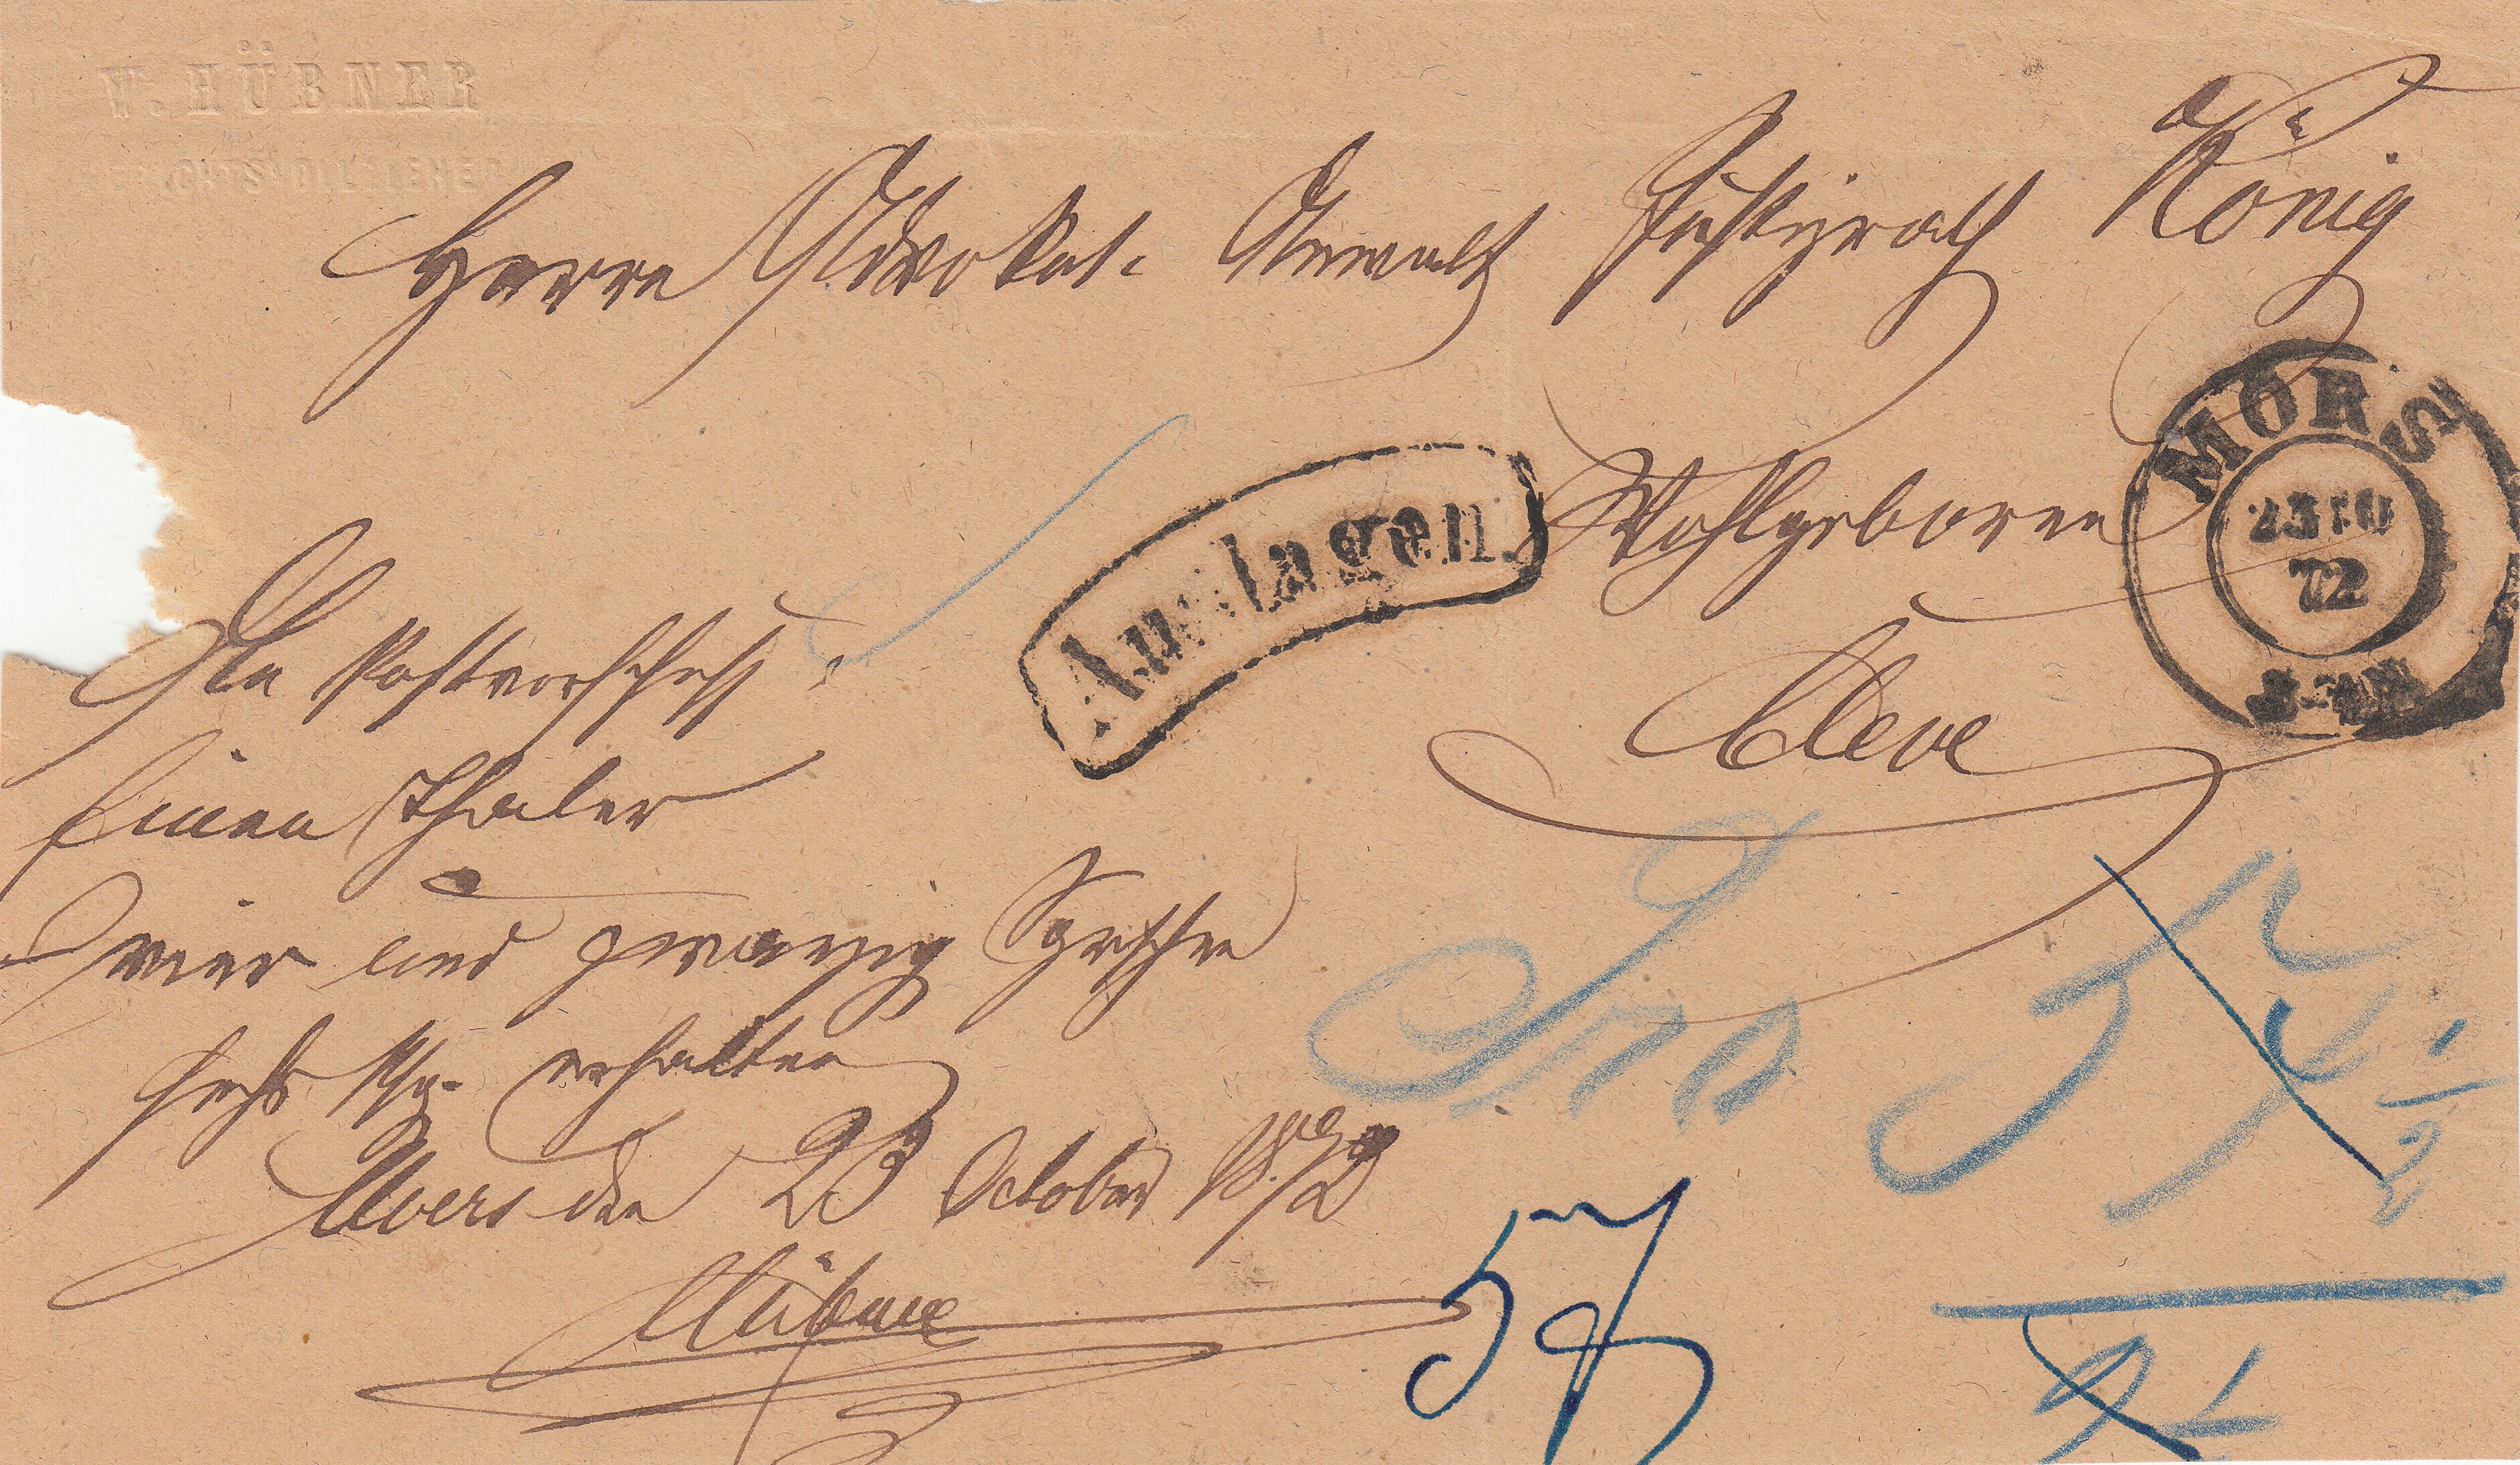 W. HÜBNER
GERICHTSVOLLZIEHER
Herrn Advokat-Anwalt Justizrath König
Wohlgeboren
Cleve
MÖRS
23 10
72
Auslagen.
Als Postvorschuß
Einen Thaler
vier und zwanzig Sgrschen
sechs Pfg. erhalten
Moers den 23 October 1872
Hübner